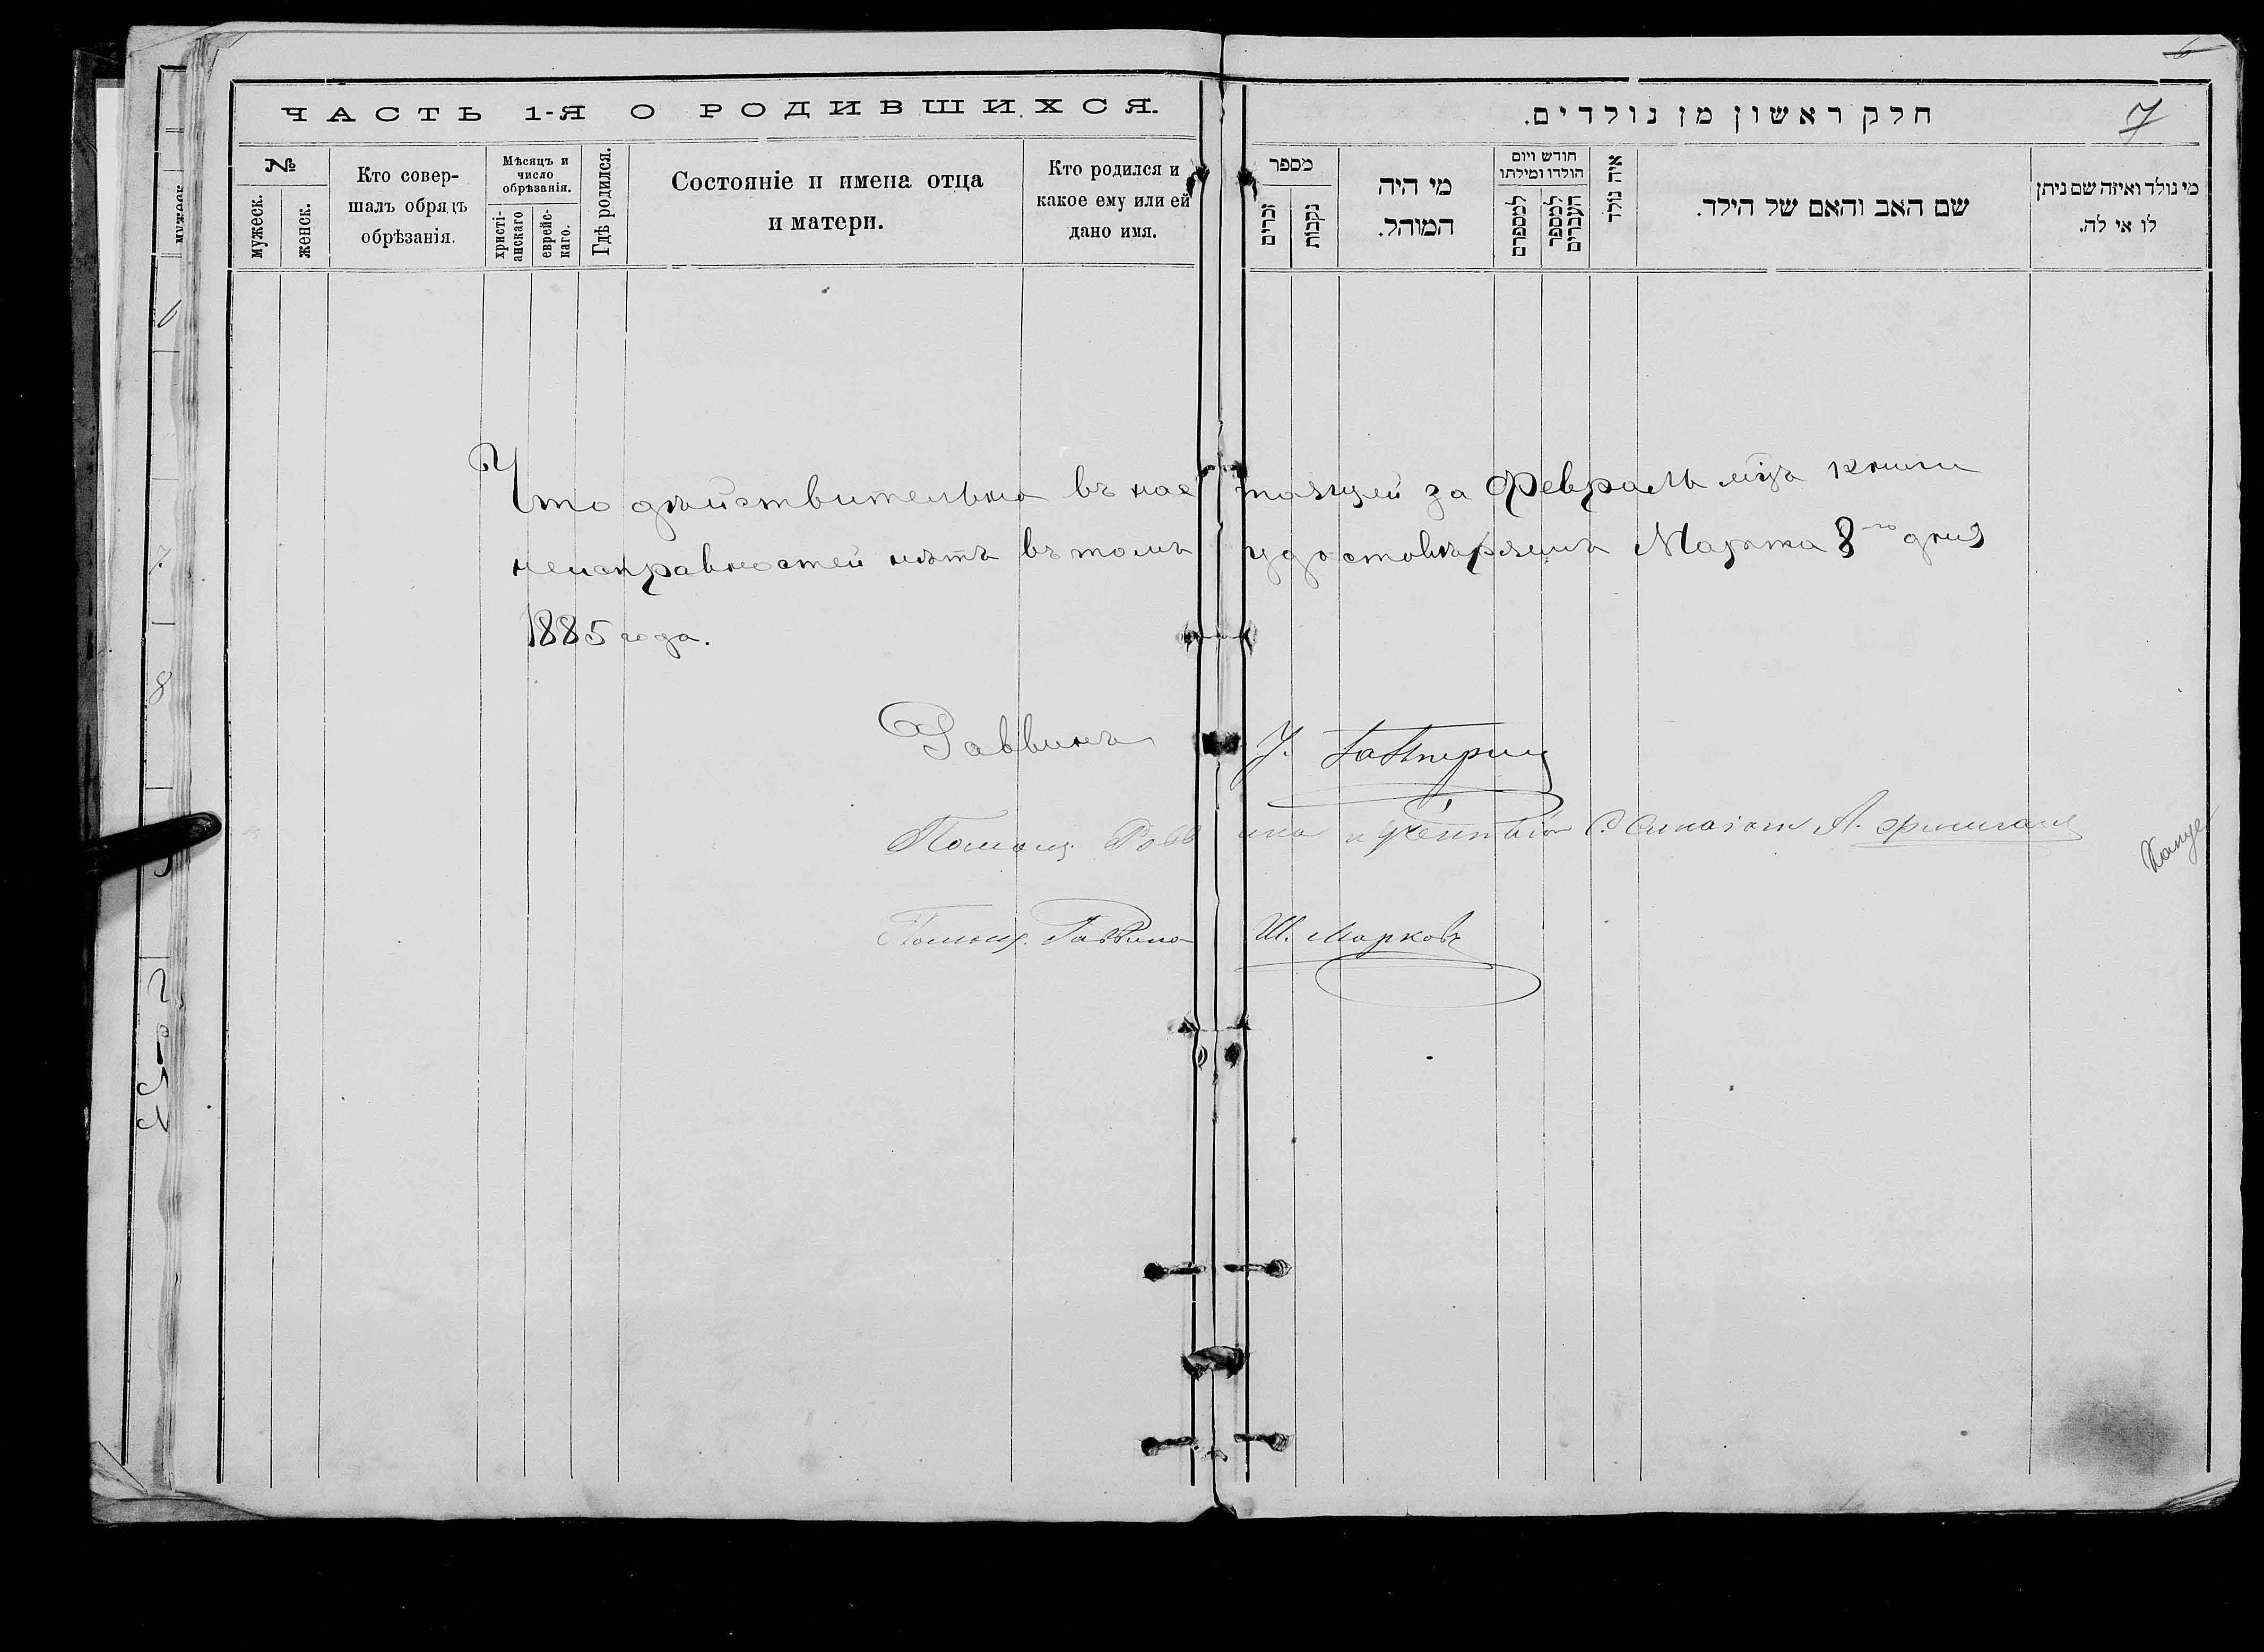 6
7
ЧАСТЬ 1-Я О РОДИВШИХСЯ.
№
мужеск.
женск.
Кто совер-
шалъ обрядъ
обрѣзанія.
Мѣсяцъ и
число
обрѣзанія.
христі-
анскаго
еврейс-
каго.
Гдѣ родился.
Состояніе и имена отца
и матери.
Кто родился и
какое ему или ей
дано имя.
חלק ראשון מן נולדים.
מספר
זכרים
נקבות
מי היה
המוהל.
חודש ויום
הולדו ומילתו
למספרם
למספר
העברים
איה נולד
שם האב והאם של הילד.
מי נולד ואיזה שם ניתן
לו אי לה.
Что дѣйствительно въ настоящей за Февраль мцъ книги
неисправностей нѣтъ въ томъ удостовѣряемъ Марта 8го дня
1885 года.
Раввинъ
Помощ. Раввина и
Помощ. Раввина Ш. Марковъ
мужеск.
6
7
8